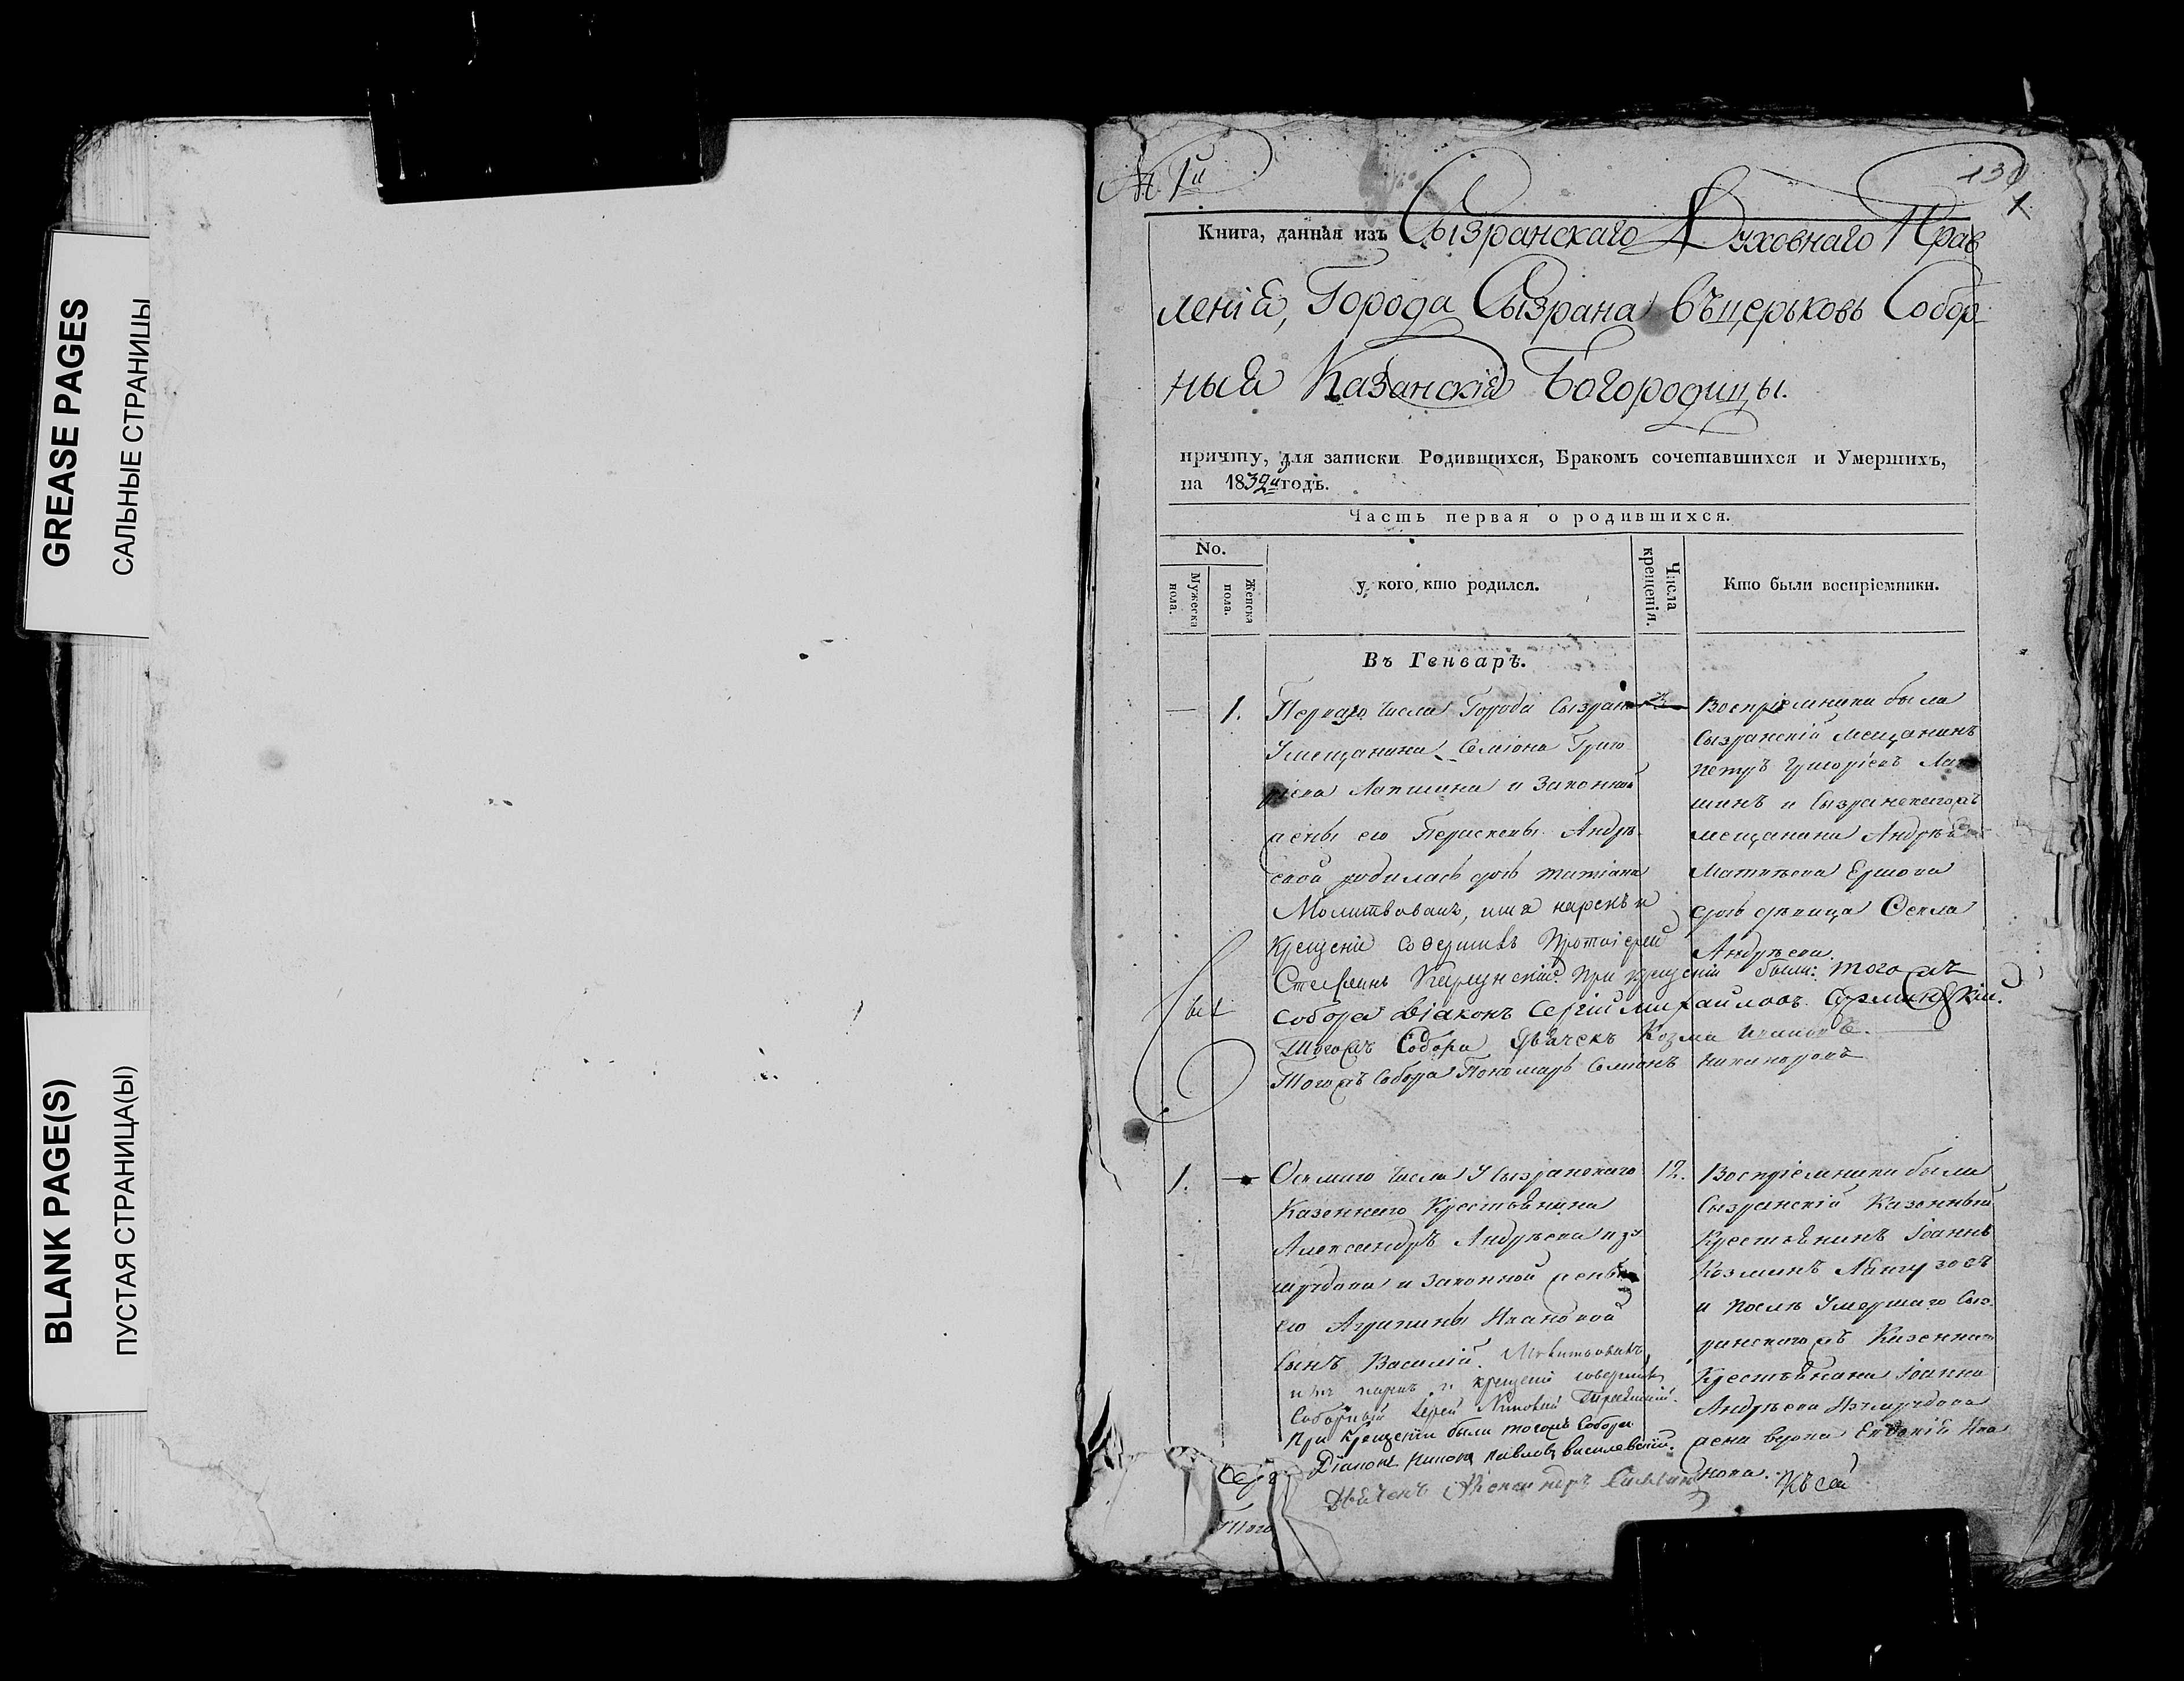 GREASE PAGES
САЛЬНЫЕ СТРАНИЦЫ
BLANK PAGE(S)
ПУСТАЯ СТРАНИЦА(Ы)
№ 1й
130
1
Книга, данная изъ Сызранскаго Духовнаго Прав
ленія, Города Сызрана въ церьковь Собор
ныя Казанскія Богородицы.
причту, для записки Родившихся, Бракомъ сочетавшихся и Умершихъ,
на 1832й годъ.
Часть первая о родившихся.
No.
Мужеска пола.
Женска пола.
у кого кто родился.
Числа крещенія.
Кто были воспріемники.
Въ Генварѣ.
1.
Перваго числа Города Сызрана
У мещанина Семіона Григо
ріева Лапшина и законной
жены его Параскевы Андрѣ
евой родилась дочь Татіана
Молитвовалъ, имя нарекъ и
крещеніе совершилъ Протоіерей
Стефанъ При крещеніи были: тогожъ
Собора Діаконъ Сергій Михайловъ
Тогожъ Собора Дьячекъ Козма Ивановъ.
Тогожъ Собора Пономарь Семіонъ Никаноровъ
Воспріемники были
Сызранскій мещанинъ
Петръ Григоріевъ Лап
шинъ и Сызранскагожъ
мещанина Андрѣя
Матвѣева Ершова
дочь дѣвица Фекла
Андрѣева.
1.
Осьмаго числа У Сызранскаго
Казеннаго Крестьянина
Александръ Андрѣева
и законной жены
его Агрипины Ивановой
сынъ Василій. Молитвовалъ
имя нарекъ и крещеніе совершилъ
Соборный Іерей
При крещеніи были тогожъ Собора
Діаконъ Павловъ Василевскій.
Дьячекъ Александръ
12.
Воспріемники были
Сызранскій Казенный
Крестьянинъ Іоаннъ
Козминъ
и послѣ умершаго Сыз
ранскагожъ Казеннаго
Крестьянина Іоанна
Андрѣева
жена вдова Евдокія Ива
нова.
Того